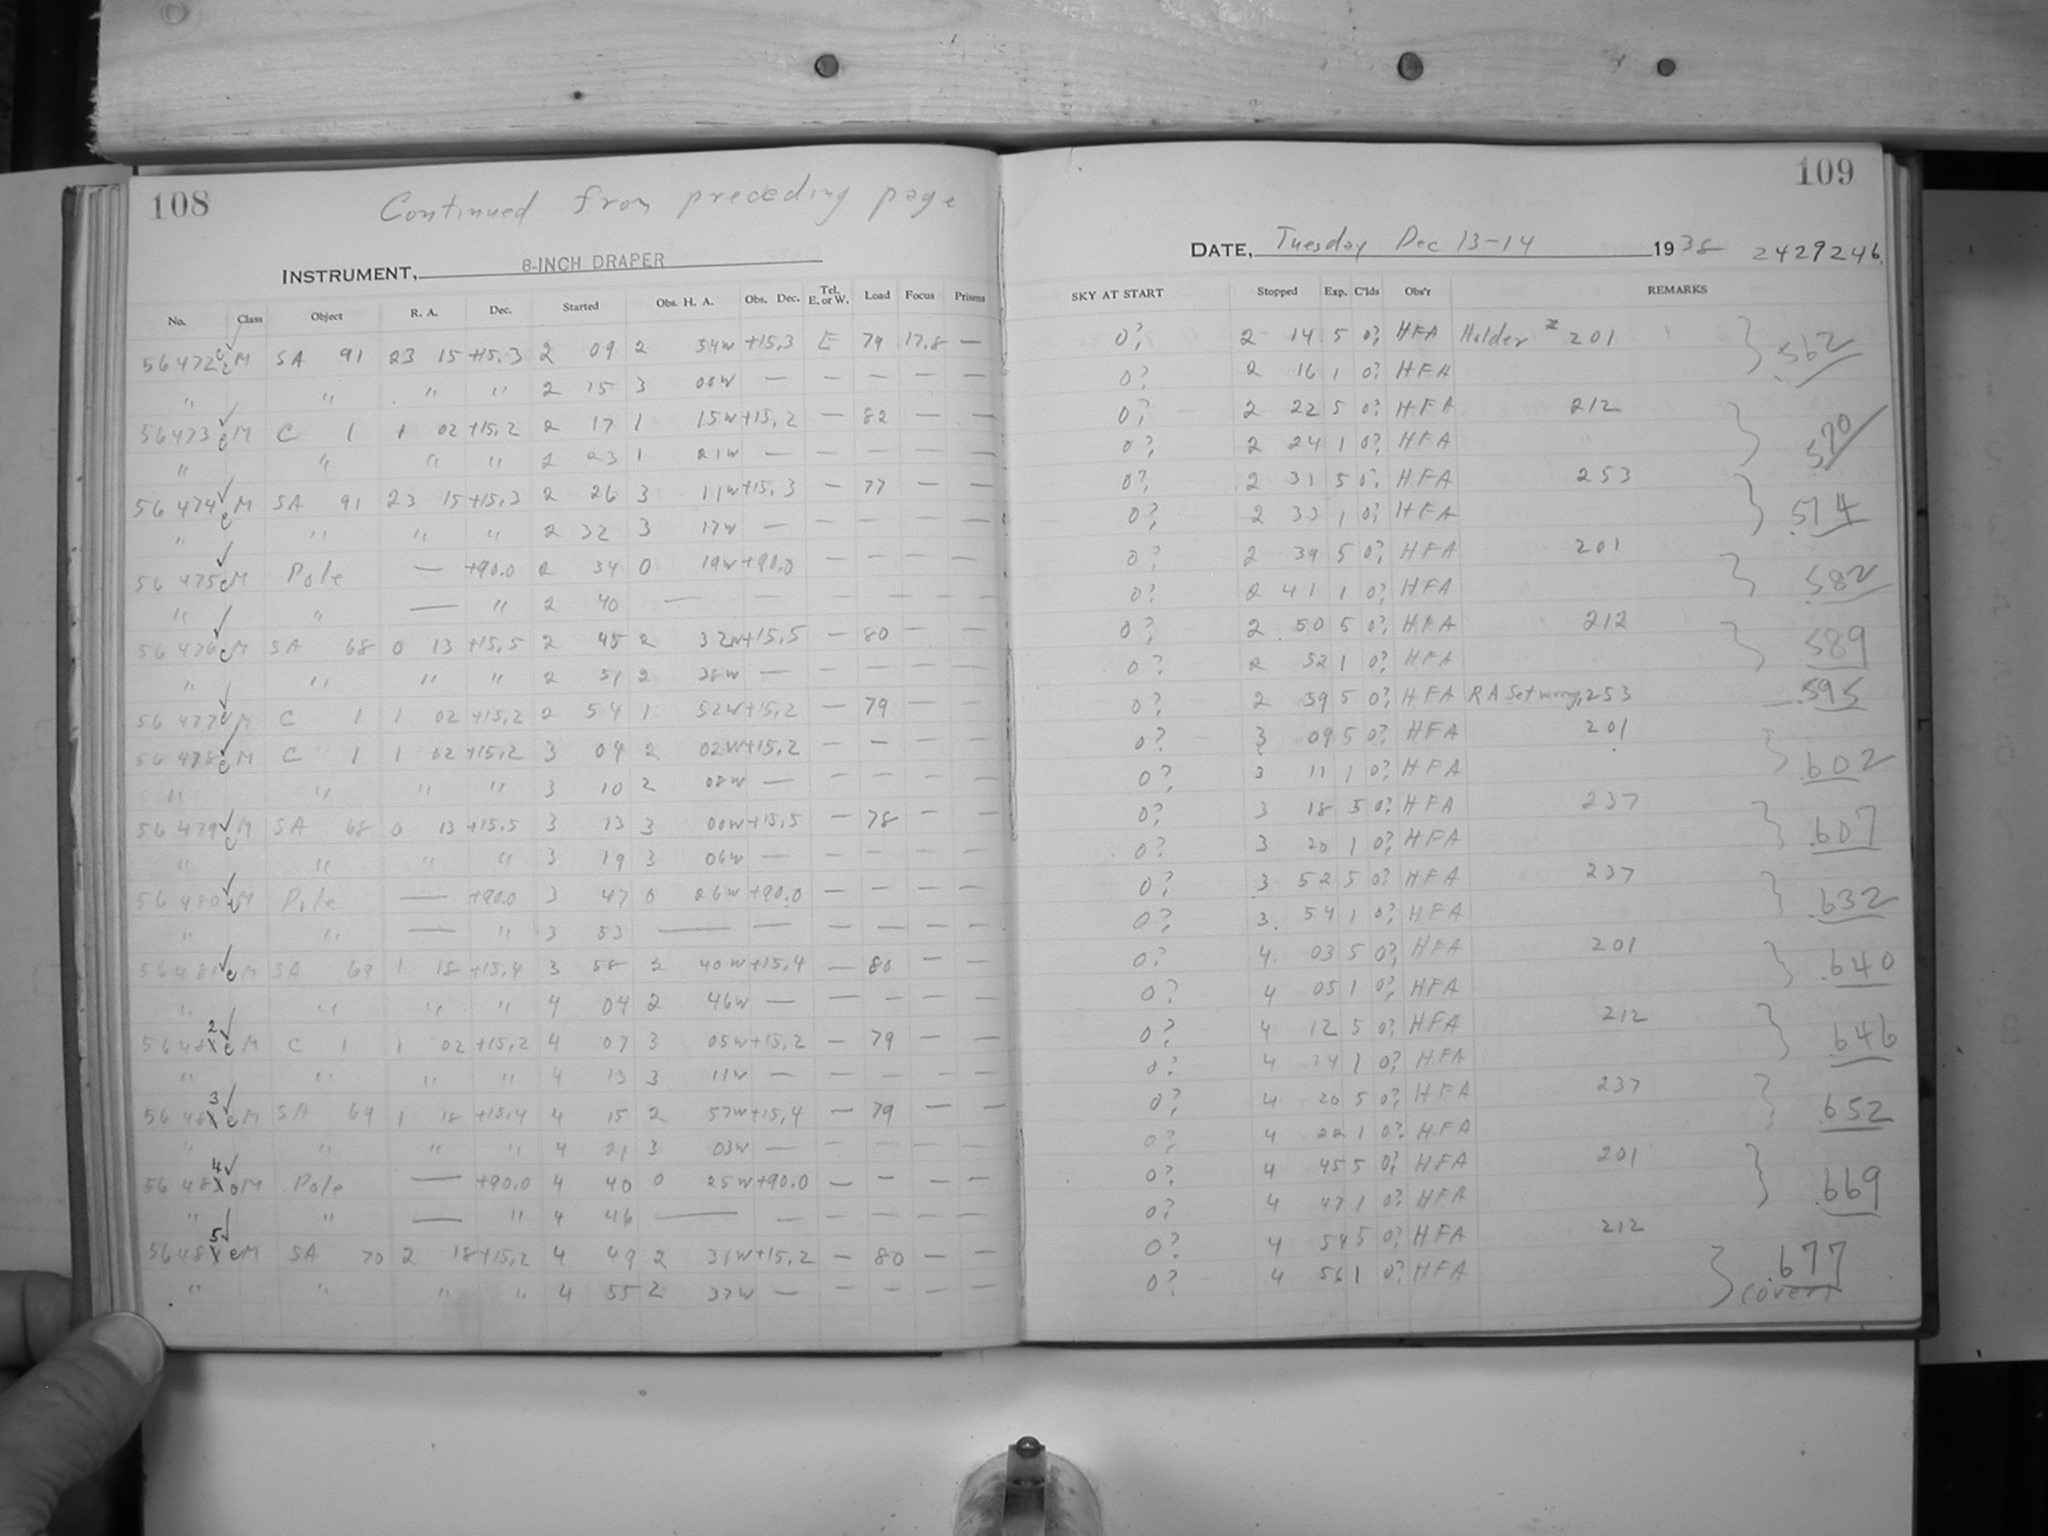 108
Continued from preceding page
INSTRUMENT, 8-INCH DRAPER
No. Class Object R. A. Dec. Started Obs. H. A. Obs. Dec. Tel. E. or W. Load Focus Prisms
56472 c M SA 91 23 15 +15.3 2 09 2 54W +15.3 E 79 17.8 —
" " " " 2 15 3 00W — — — — —
56473 c M C 1 1 02 +15.2 2 17 1 15W +15.2 — 82 — —
" " " " 2 23 1 21W — — — — —
56474 c M SA 91 23 15 +15.3 2 26 3 11W +15.3 — 77 — —
" " " " 2 32 3 17W — — — — —
56475 c M Pole — +90.0 2 34 0 19W +90.0 — — — —
" " — " 2 40 — — — — — —
56476 c M SA 68 0 13 +15.5 2 45 2 32W +15.5 — 80 — —
" " " " 2 51 2 38W — — — — —
56477 c M C 1 1 02 +15.2 2 54 1 52W +15.2 — 79 — —
56478 c M C 1 1 02 +15.2 3 04 2 02W +15.2 — — — —
" " " " 3 10 2 08W — — — — —
56479 c M SA 68 0 13 +15.5 3 13 3 00W +15.5 — 78 — —
" " " " 3 19 3 06W — — — — —
56480 c M Pole — +90.0 3 47 0 26W +90.0 — — — —
" " — " 3 53 — — — — — —
56481 c M SA 69 1 18 +15.4 3 58 2 40W +15.4 — 80 — —
" " " " 4 04 2 46W — — — — —
56482 c M C 1 1 02 +15.2 4 07 3 05W +15.2 — 79 — —
" " " " 4 13 3 11W — — — — —
56483 c M SA 69 1 18 +15.4 4 15 2 57W +15.4 — 79 — —
" " " " 4 21 3 03W — — — — —
56484 c M Pole — +90.0 4 40 0 25W +90.0 — — — —
" " — " 4 46 — — — — — —
56485 c M SA 70 2 18 +15.2 4 49 2 31W +15.2 — 80 — —
" " " " 4 55 2 37W — — — — —
109
DATE, Tuesday Dec 13-14 1938 2429246.
SKY AT START Stopped Exp. C'lds Obs'r REMARKS
0? 2 14 5 0? HFA Holder # 201 .562
0? 2 16 1 0? HFA
0? 2 22 5 0? HFA 212 .570
0? 2 24 1 0? HFA
0? 2 31 5 0? HFA 253 .574
0? 2 33 1 0? HFA
0? 2 39 5 0? HFA 201 .582
0? 2 41 1 0? HFA
0? 2 50 5 0? HFA 212 .589
0? 2 52 1 0? HFA
0? 2 59 5 0? HFA RA Set wrong, 253 .595
0? 3 09 5 0? HFA 201 .602
0? 3 11 1 0? HFA
0? 3 18 5 0? HFA 237 .607
0? 3 20 1 0? HFA
0? 3 52 5 0? HFA 237 .632
0? 3 54 1 0? HFA
0? 4 03 5 0? HFA 201 .640
0? 4 05 1 0? HFA
0? 4 12 5 0? HFA 212 .646
0? 4 14 1 0? HFA
0? 4 20 5 0? HFA 237 .652
0? 4 22 1 0? HFA
0? 4 45 5 0? HFA 201 .669
0? 4 47 1 0? HFA
0? 4 54 5 0? HFA 212 .677
0? 4 56 1 0? HFA (over)